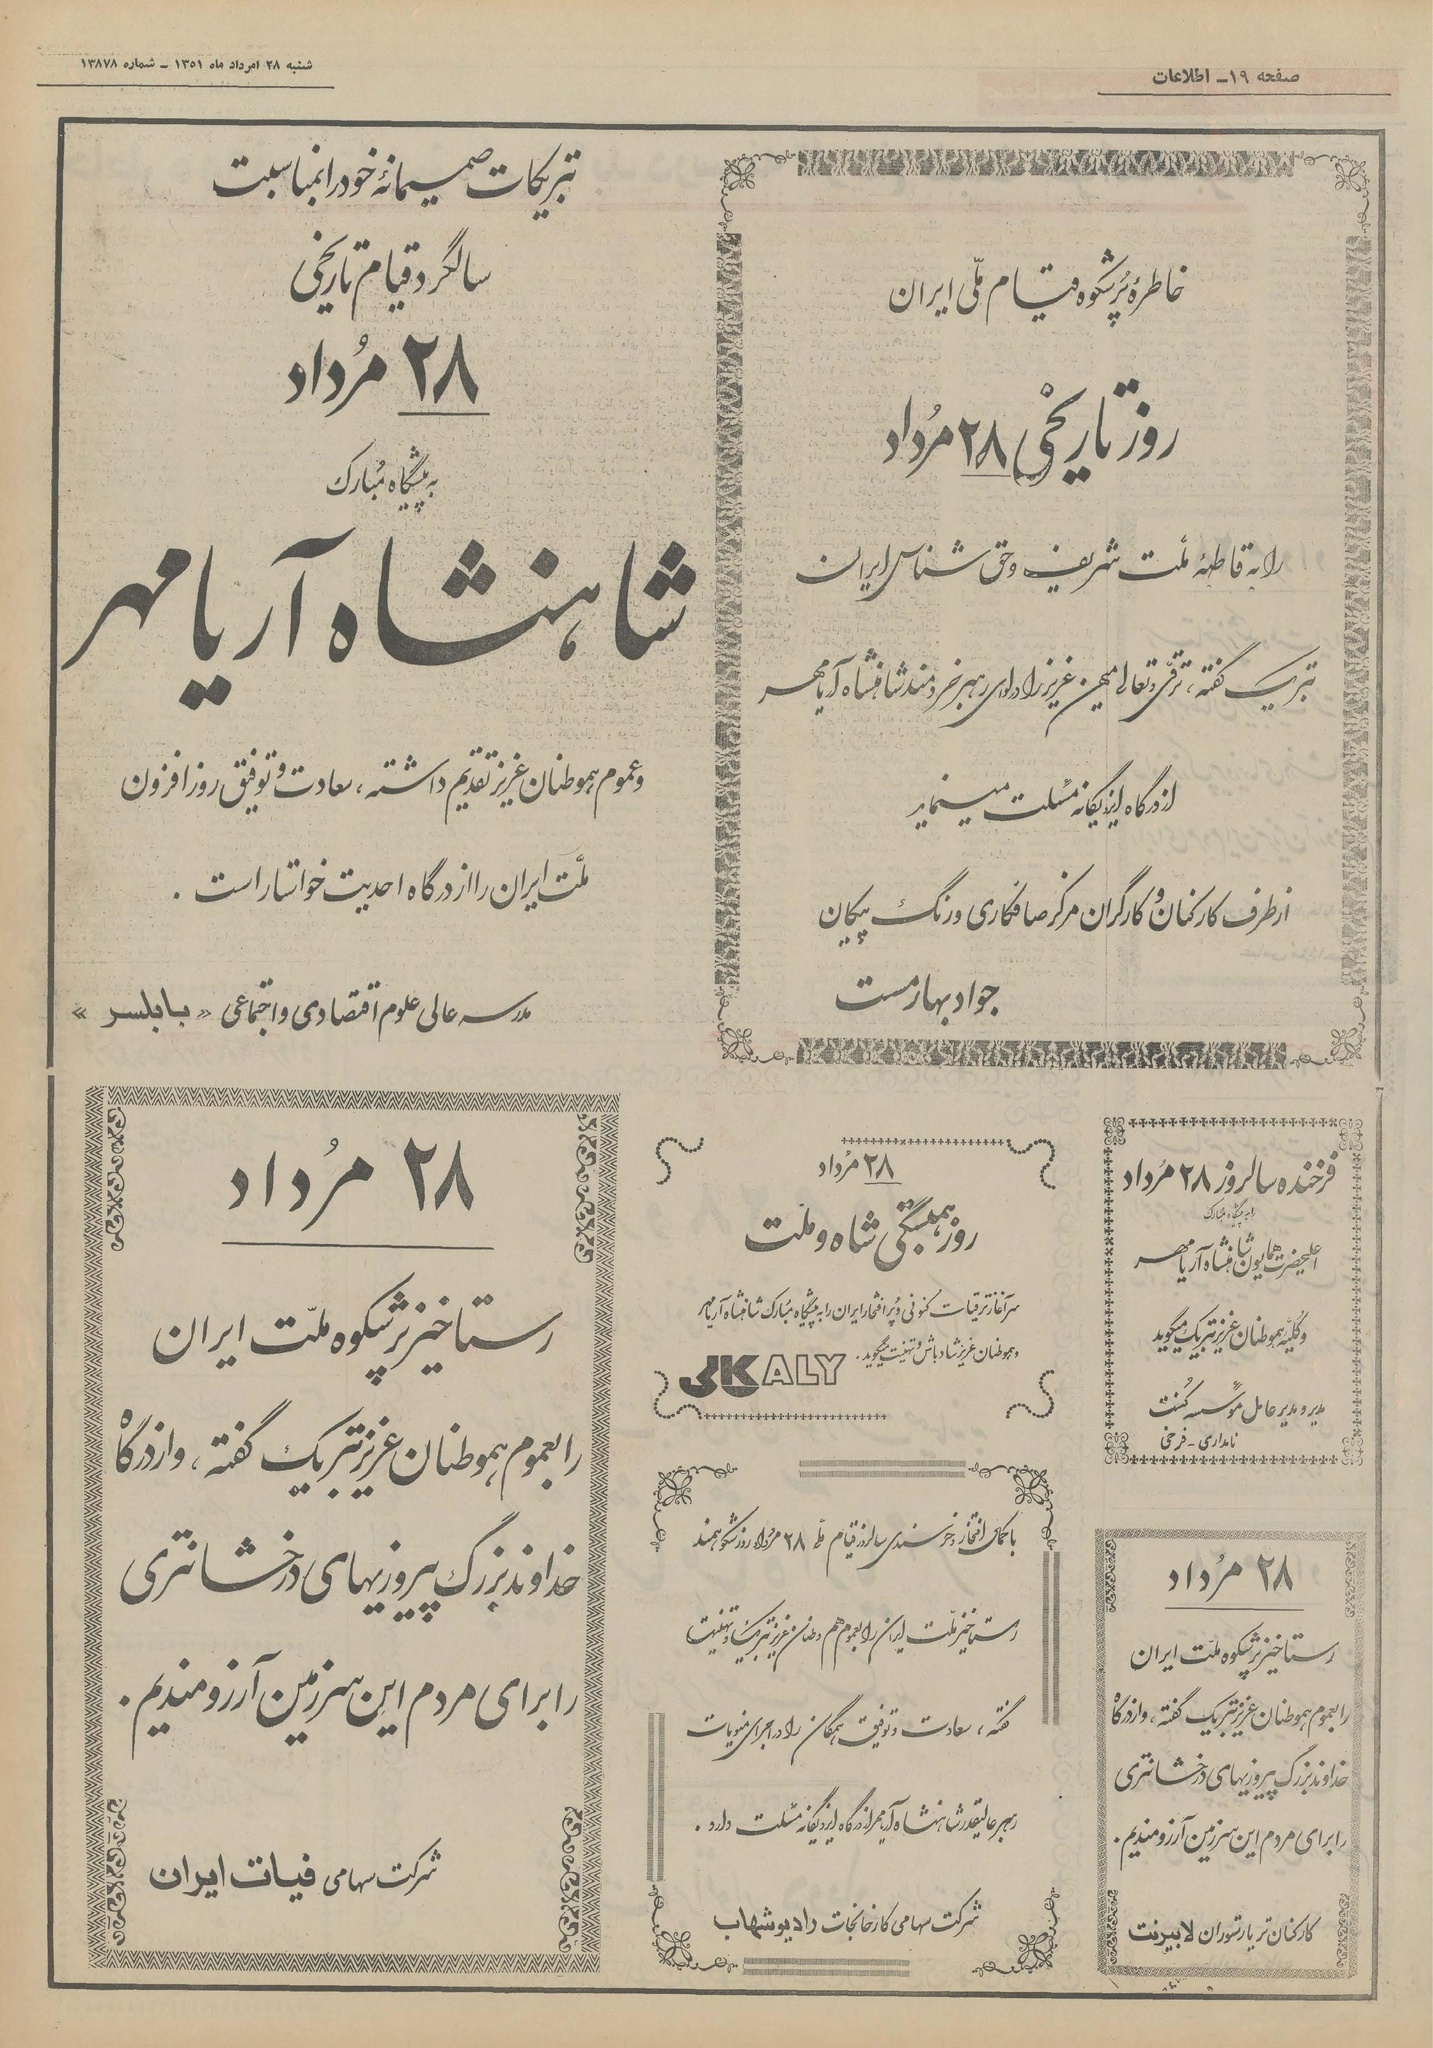 صفحه ۱۹ـ اطلاعات
شنبه ۲۸ امرداد ماه ۱۳۵۱ ـ شماره ۱۳۸۷۸
خاطرهٔ پرشکوه قیام ملّی ایران
روز تاریخی ۲۸ مرُداد
را به قاطبهٔ ملّت شریف و حق شناس ایران
تبریک گفته، ترقّی و تعالی میهن عزیز را در لوای رهبر خردمند شاهنشاه آریامهر
از درگاه ایزد یگانه مسئلت مینماید
از طرف کارکنان و کارگران مرکز صافکاری و رنگ پیکان
جواد بهارمست
تبریکات صمیمانهٔ خود را بمناسبت
سالگرد قیام تاریخی
۲۸ مرُداد
به پیشگاه مُبارک
شاهنشاه آریامهر
و عموم هموطنان عزیز تقدیم داشته، سعادت و توفیق روزافزون
ملّت ایران را از درگاه احدیت خواستار است .
مدرسه عالی علوم اقتصادی و اجتماعی «بابلسر»
فرخنده سالروز ۲۸ مرُداد
را به پیشگاه مبارک
اعلیحضرت همایون شاهنشاه آریامهر
و کلیّه هموطنان عزیز تبریک میگوید
مدیر و مدیر عامل مؤسسه کُنت
نامداری ـ فرخی
۲۸ مرُداد
روز همبستگی شاه و ملّت
سرآغاز ترقیات کنونی و پُر افتخار ایران را به پیشگاه مُبارک شاهنشاه آریامهر
و هموطنان عزیز شادباش و تهنیت میگوید .
کالی KALY
۲۸ مرُداد
رستاخیز پرشکوه ملّت ایران
را بعموم هموطنان عزیز تبریک گفته، و از درگاه
خداوند بزرگ پیروزیهای درخشانتری
را برای مردم این سرزمین آرزومندیم.
شرکت سهامی فیات ایران
با کمال افتخار و خرسندی سالروز قیام ملّی ۲۸ مرُداد روز شکوهمند
رستاخیز ملّت ایران را بعموم هم وطنان عزیز تبریک و تهنیت
گفته، سعادت و توفیق همگان را در اجرای منویات
رهبر عالیقدر شاهنشاه آریامهر از درگاه ایزد یگانه مسئلت دارد .
شرکت سهامی کارخانجات رادیو شهاب
۲۸ مرُداد
رستاخیز پرشکوه ملّت ایران
را بعموم هموطنان عزیز تبریک گفته، و از درگاه
خداوند بزرگ پیروزیهای درخشانتری
را برای مردم این سرزمین آرزومندیم.
کارکنان تریا رستوران لابیرنت